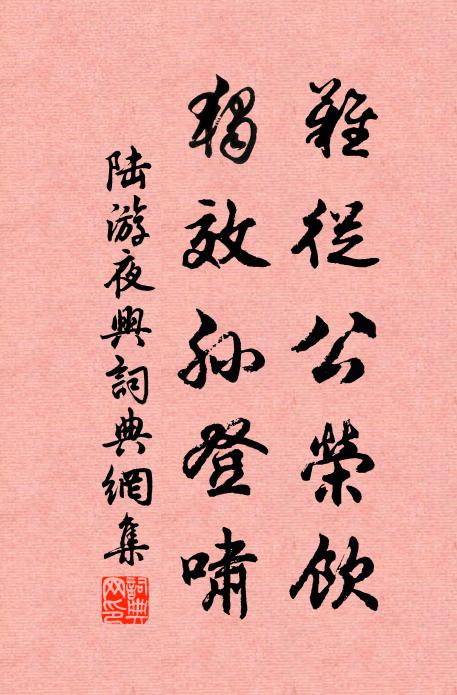 難從公榮飲
獨效孫登嘯
陸游夜興詞典網集
詞典網印